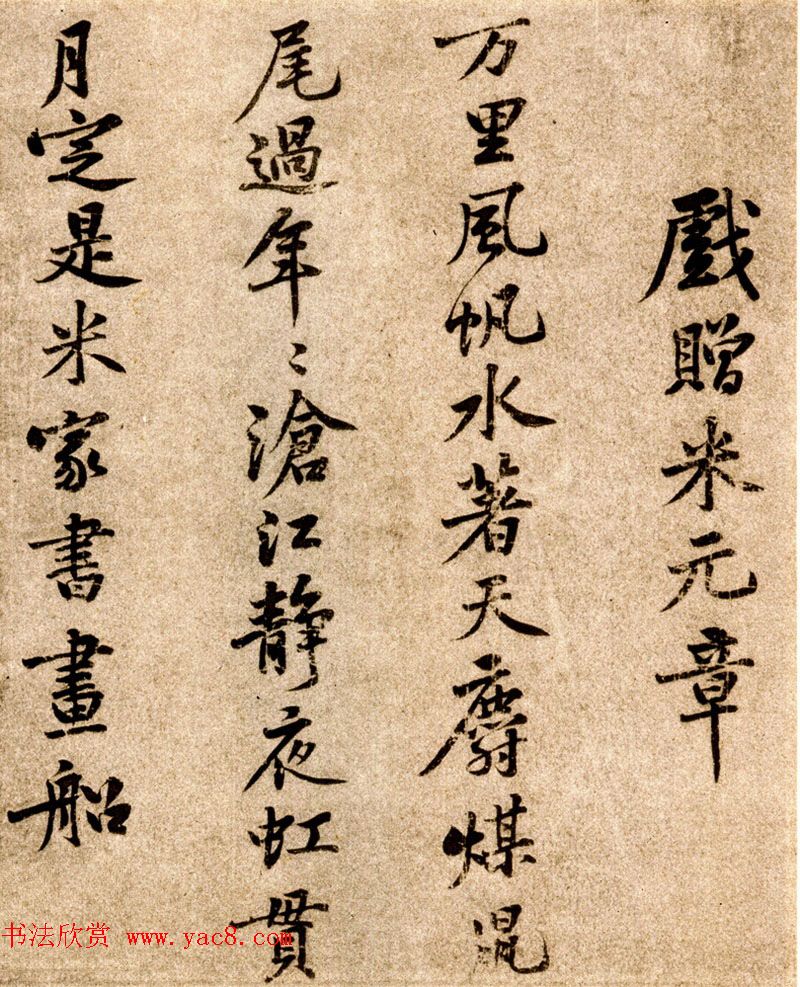 戲贈米元章
万里風帆水著天麝煤混
尾過年〻滄江靜夜虹貫
月定是米家書畫船
书法欣赏 www.yac8.com